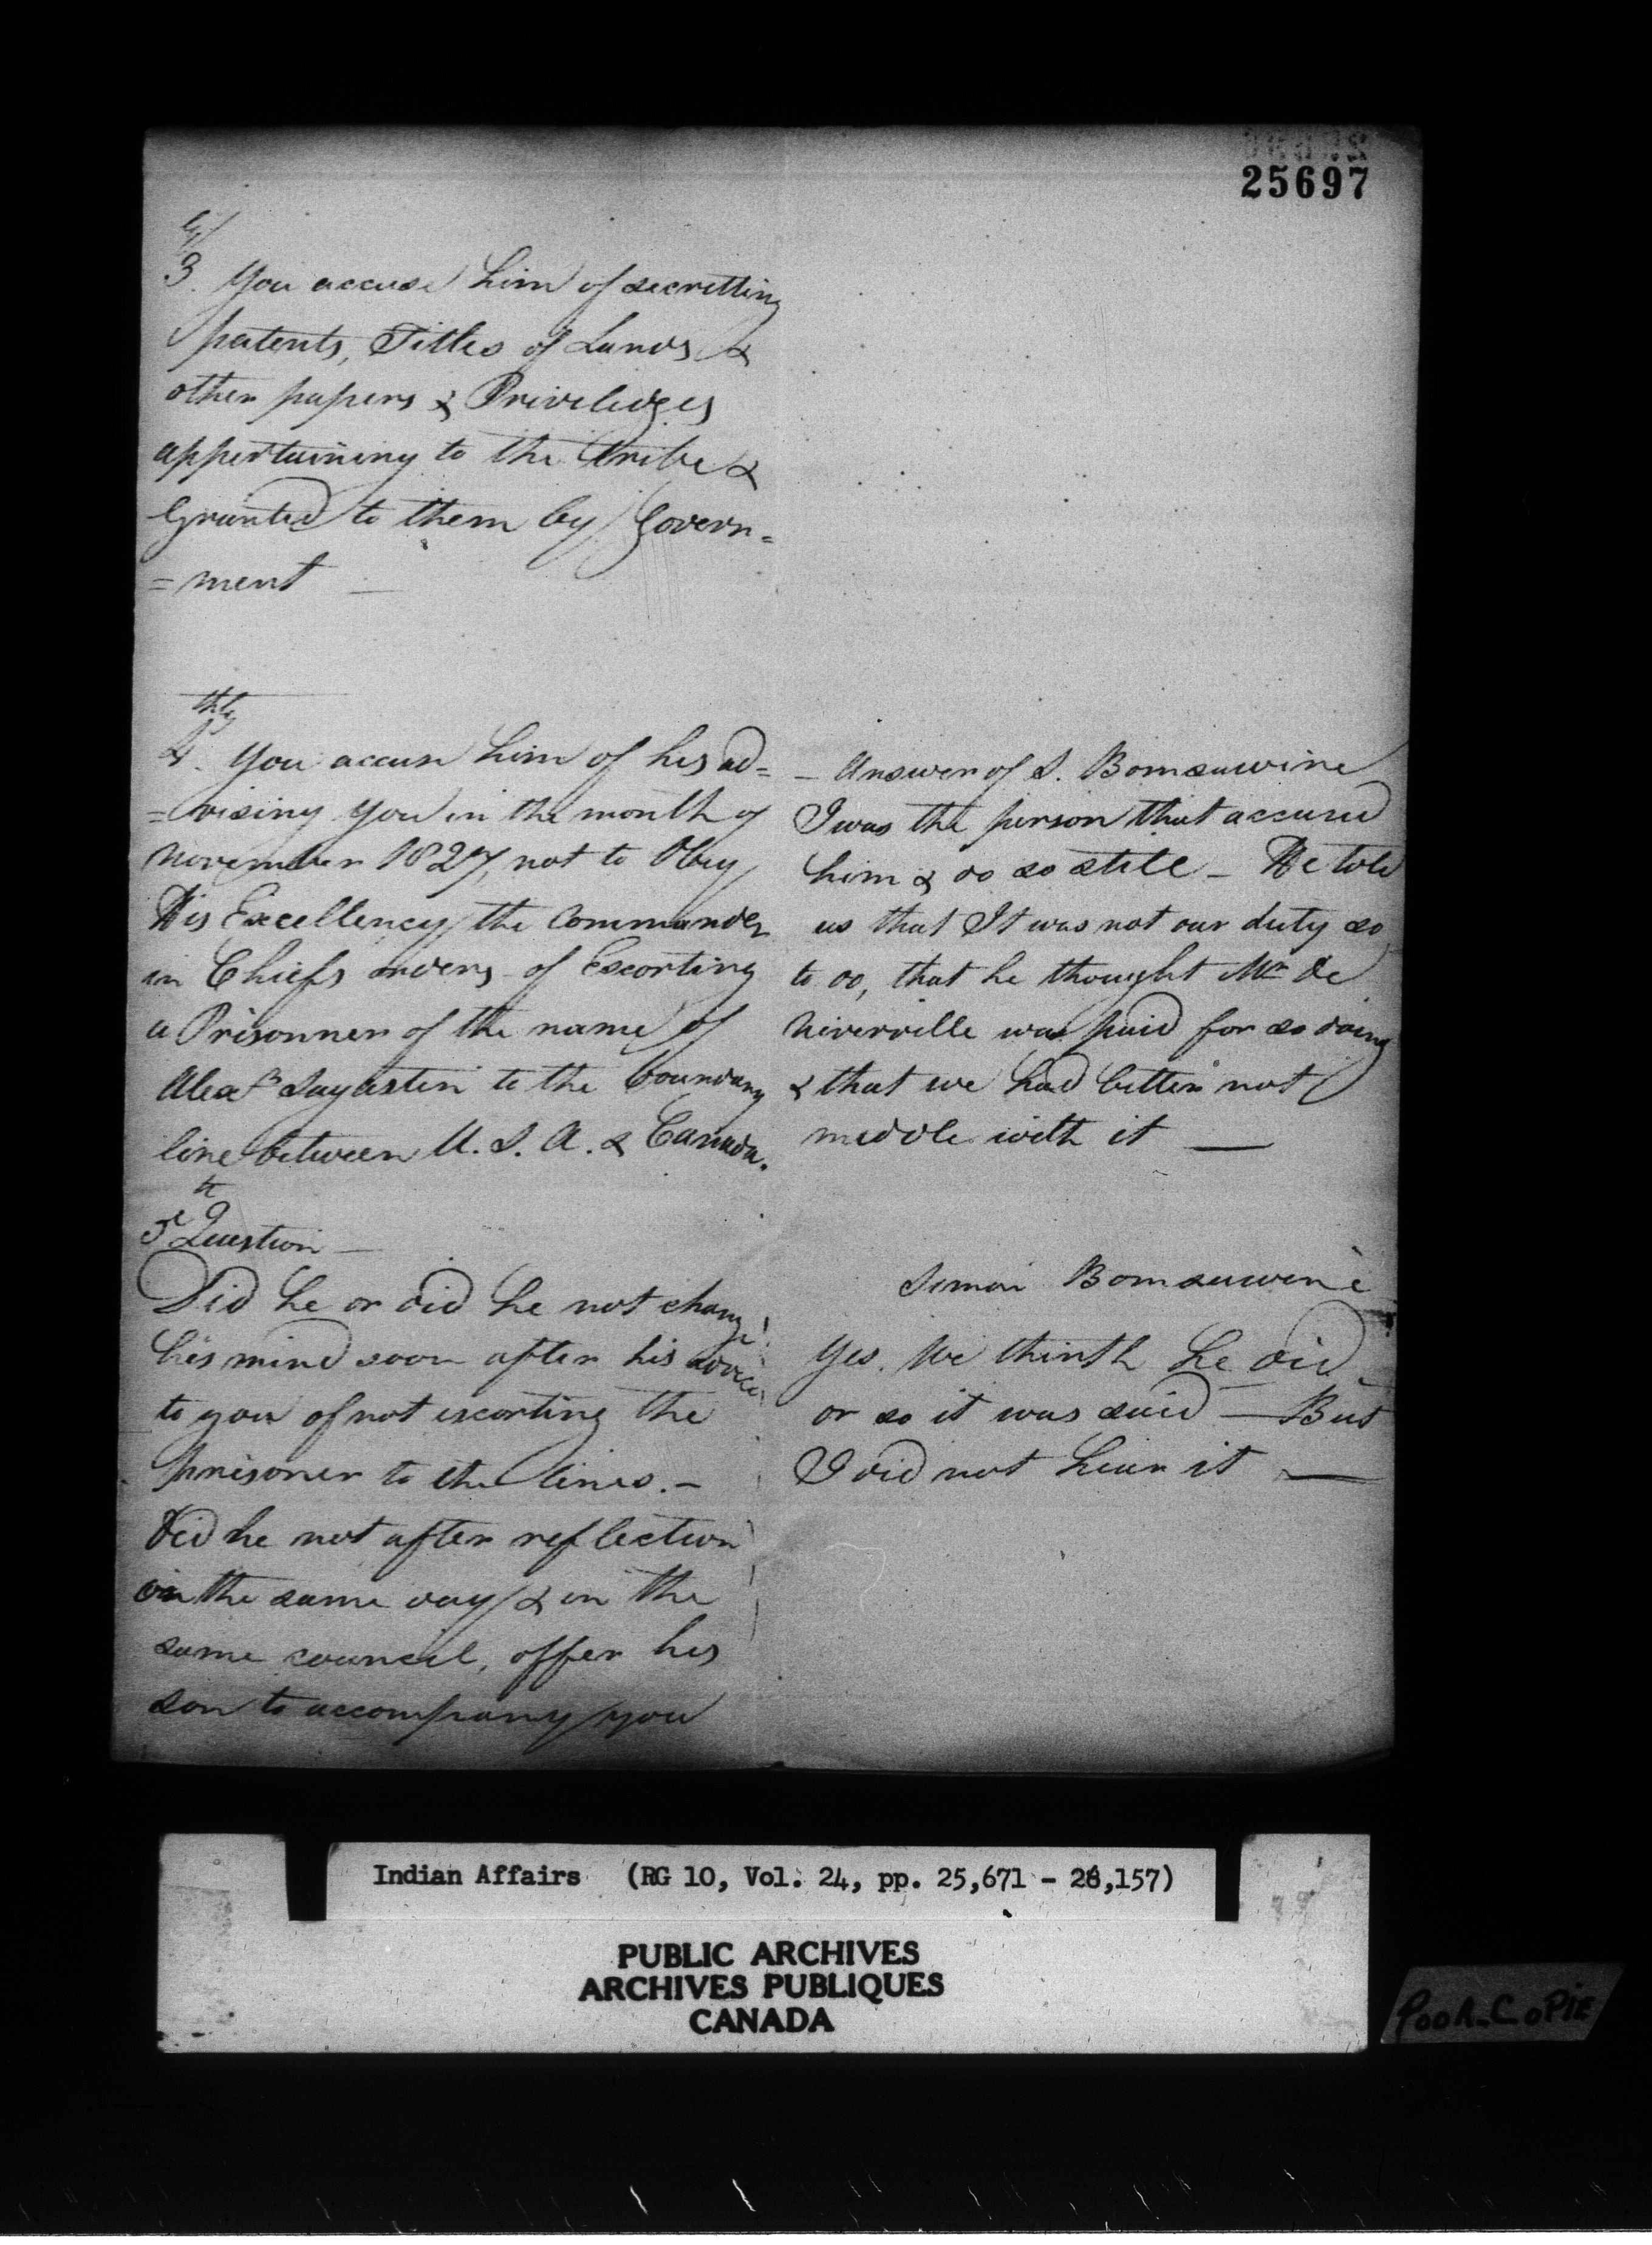 25697
3.ly You accuse him of secretting
patents, Titles of Lands &
other papers & Priviledges
appertaining to the tribe &
Granted to them by Govern=
=ment —
4.thly You accuse him of his ad=
=vising you in the month of
November 1827, not to Obey
His Excellency the Commander
in Chiefs orders of Escorting
a Prisonner of the name of
Alexr to the boundary
line between U.S.A. & Canada.
5th Question —
Did he or did he not change
his mind soon after his advice
to you of not escorting the
prisoner to the lines. —
Did he not after reflection
on the same day & in the
same council, offer his
son to accompany you
— Answer of S. Bomsawine
I was the person that accused
him & do so still — He told
us that It was not our duty so
to do, that he thought Mr De
Niverville was paid for so doing
& that we had better not
meddle with it —
Simon Bomsawine
Yes. We think he did
or so it was said — But
I did not hear it —
Indian Affairs (RG 10, Vol. 24, pp. 25,671 - 26,157)
PUBLIC ARCHIVES
ARCHIVES PUBLIQUES
CANADA
POOR_COPIE